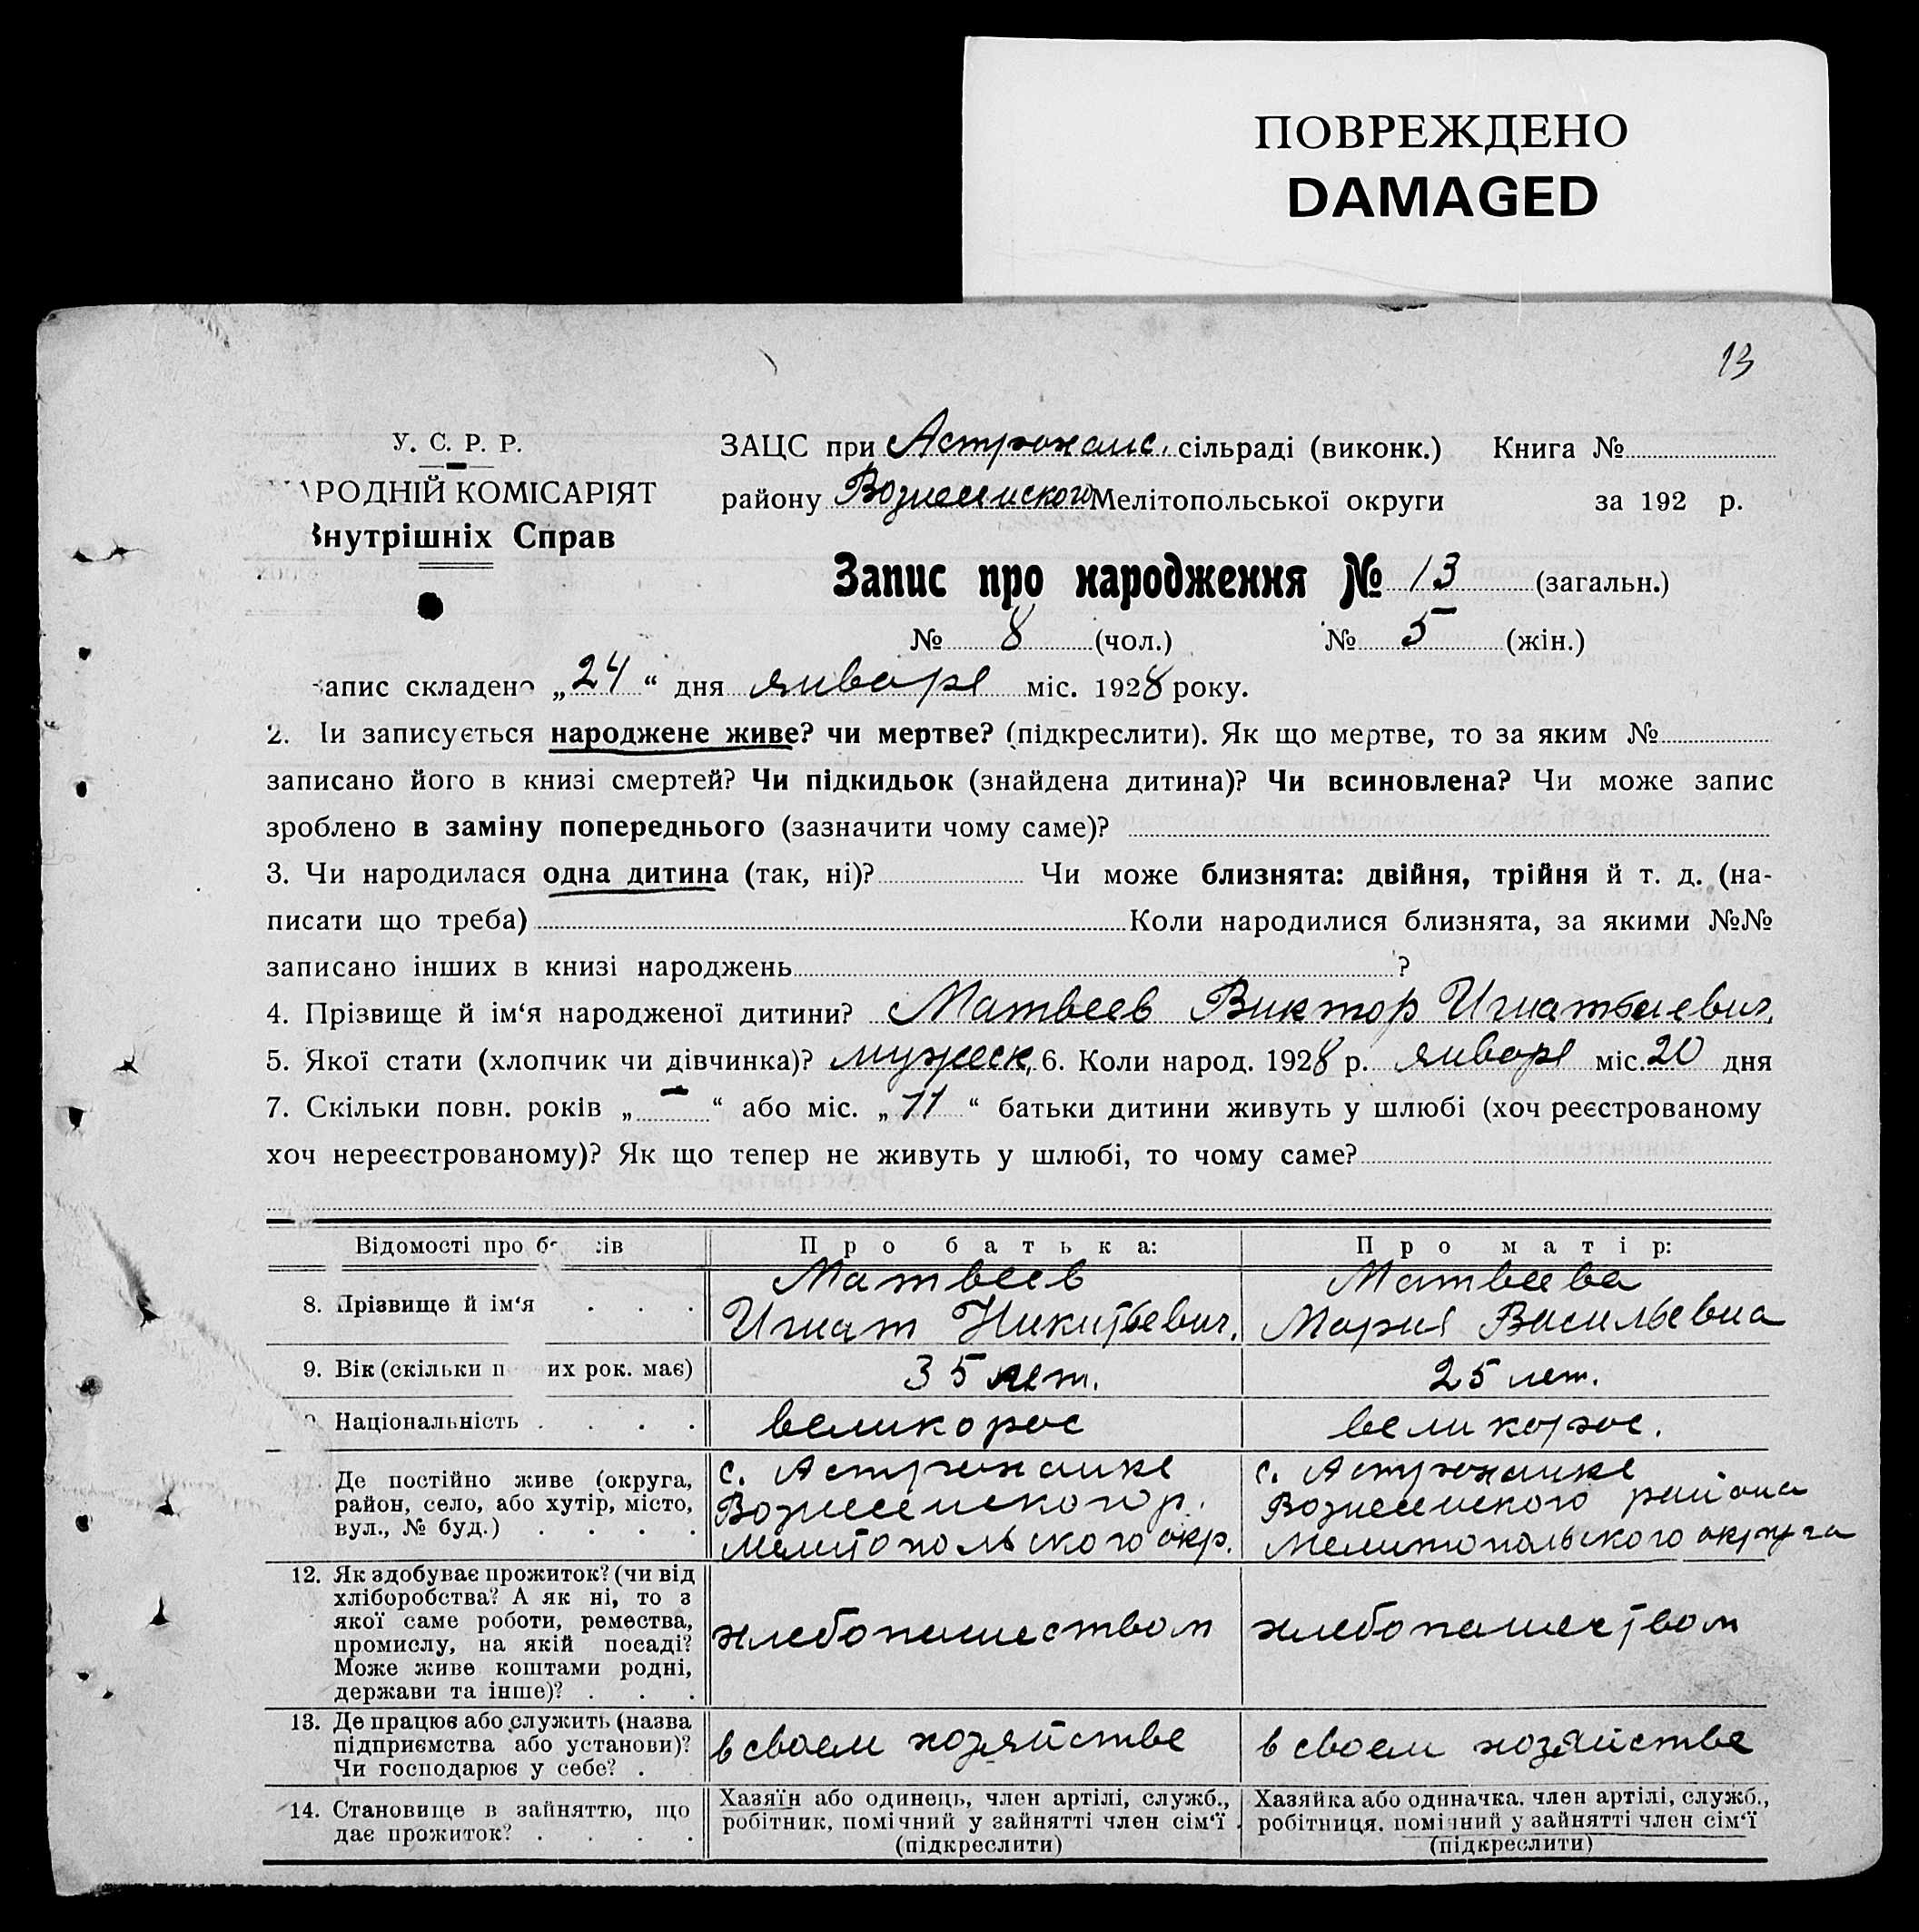 ПОВРЕЖДЕНО
DAMAGED
13
У. С. Р. Р.
АРОДНІЙ КОМІСАРІЯТ
Внутрішніх Справ
ЗАЦС при Астрохане. сільраді (виконк.) Книга №
району Вознесенского Мелітопольської округи за 192 р.
Запис про народження № 13 (загальн.)
№ 8 (чол.) № 5 (жін.)
апис складено „24“ дня января міс. 1928 року.
2. Чи записується народжене живе? чи мертве? (підкреслити). Як що мертве, то за яким №
записано його в книзі смертей? Чи підкидьок (знайдена дитина)? Чи всиновлена? Чи може запис
зроблено в заміну попереднього (зазначити чому саме)?
3. Чи народилася одна дитина (так, ні)? Чи може близнята: двійня, трійня й т. д. (на-
писати що треба) Коли народилися близнята, за якими №№
записано інших в книзі народжень ?
4. Прізвище й ім‘я народженої дитини? Матвеев Виктор Игнатьевич.
5. Якої стати (хлопчик чи дівчинка)? мужеск. 6. Коли народ. 1928 р. январе міс. 20 дня
7. Скільки повн. років „—“ або міс. „11“ батьки дитини живуть у шлюбі (хоч реєстрованому
хоч нереєстрованому)? Як що тепер не живуть у шлюбі, то чому саме?
Відомості про ба ків Про батька: Про матір:
8. Прізвище й ім‘я . . . Матвеев Игнат Никитьевич. Матвеева Мария Васильевна
9. Вік (скільки п их рок. має) 35 лет. 25 лет.
Національність . . . . великорос великорос.
Де постійно живе (округа, с. Астроханке с. Астроханке
район, село, або хутір, місто, Вознесенского р. Вознесенского района
вул., № буд.) . . . . Мелитопольского окр. Мелитопольского округа
12. Як здобуває прожиток? (чи від
хліборобства? А як ні, то з
якої саме роботи, ремества, хлебопашеством хлебопашеством
промислу, на якій посаді?
Може живе коштами родні,
держави та інше)? . . .
13. Де працює або служить (назва
підприємства або установи)? в своем хозяйстве в своем хозяйстве
Чи господарює у себе? .
14. Становище в зайняттю, що Хазяїн або одинець, член артілі, служб., Хазяйка або одиначка. член артілі, служб.,
дає прожиток? . . . . робітник, помічний у зайнятті член сім‘ї. робітниця. помічний у зайнятті член сім‘ї
(підкреслити) (підкреслити)